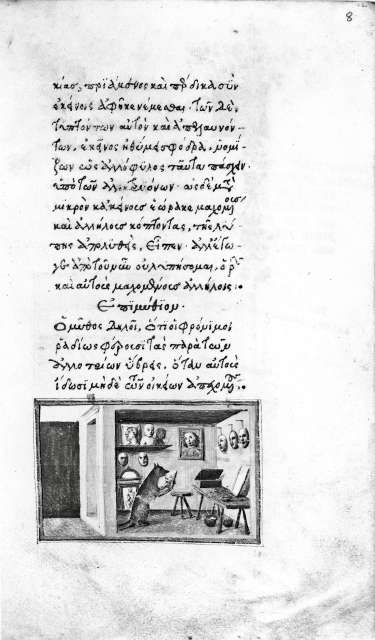 8
κίας, πριάμενος καὶ πέρδικα σὺν
ἐκείνοις ἀφῆκε νέμεσθαι. τῶν δὲ
τυπτόντων αὐτὸν καὶ ἀπελαυνόν-
των, ἐκεῖνος ἠθύμει σφόδρα, νομί-
ζων ὡς ἀλλόφυλος ταῦτα πάσχειν
ὑπὸ τῶν ἀλεκτρυόνων. ὡς δὲ μετὰ
μικρὸν κἀκείνους ἑώρακε μαχομένους
καὶ ἀλλήλους κόπτοντας, τῆς λύ-
πης ἀπολυθεὶς, εἶπεν· ἀλλ' ἔγω-
γε ἀπὸ τοῦ νῦν οὐ λυπήσομαι, ὁρῶν
καὶ αὐτοὺς μαχομένους ἀλλήλοις :
Ἐπιμύθιον.
Ὁ μῦθος δηλοῖ, ὅτι οἱ φρόνιμοι
ῥαδίως φέρουσι τὰς παρὰ τῶν
ἀλλοτρίων ὕβρεις, ὅταν αὐτοὺς
ἴδωσι μηδὲ τῶν οἰκείων ἀπεχομένους :